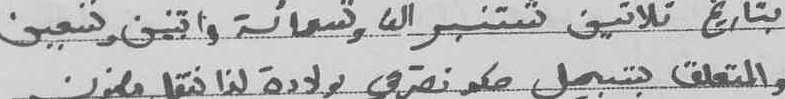 بتاريخ ثلاثين شتنبر الف وتسعمائة واثنين وتسعين
والمتعلق بتسجيل حكم تصرحي بولادة لذا فنقل مضمون